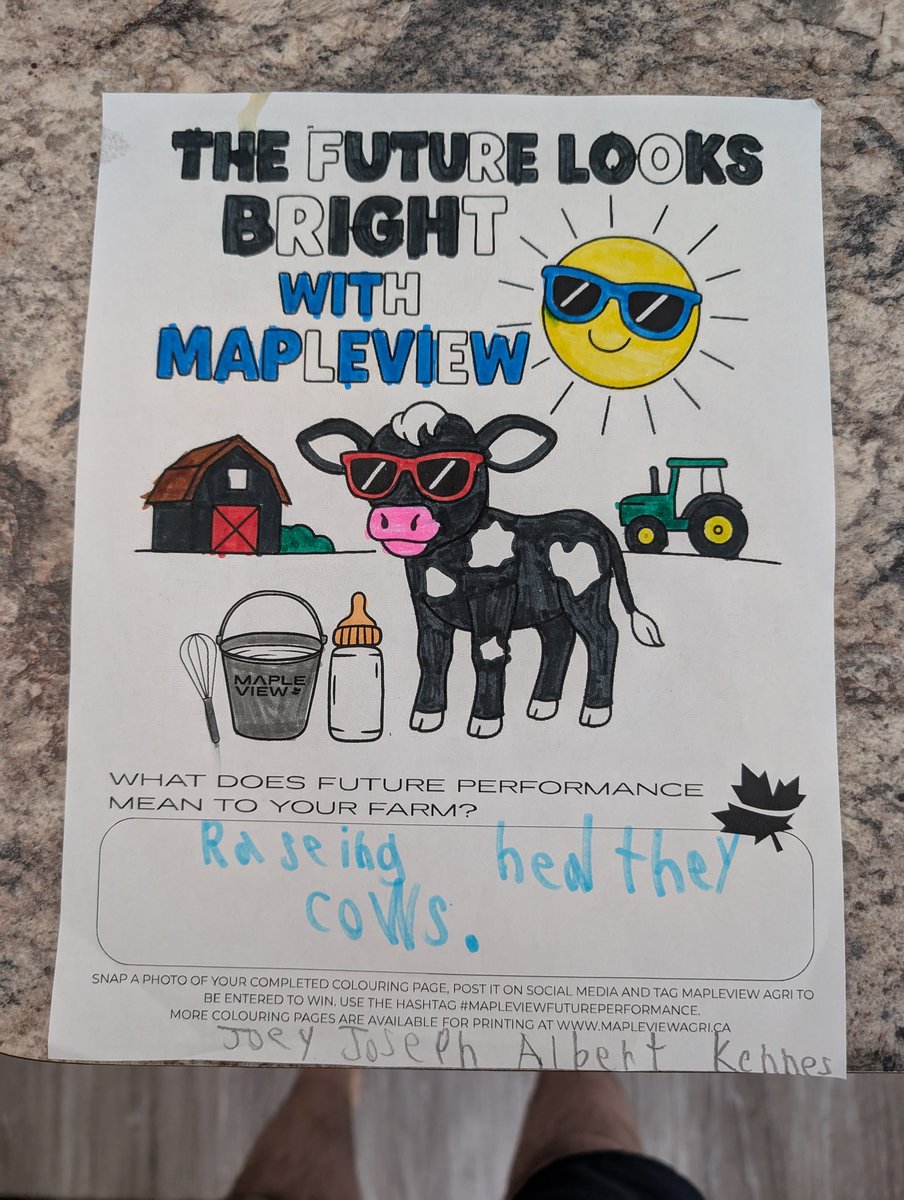 THE FUTURE LOOKS
BRIGHT
WITH
MAPLEVIEW
MAPLE
VIEW
WHAT DOES FUTURE PERFORMANCE
MEAN TO YOUR FARM?
Raseing healthey
cows.
SNAP A PHOTO OF YOUR COMPLETED COLOURING PAGE, POST IT ON SOCIAL MEDIA AND TAG MAPLEVIEW AGRI TO
BE ENTERED TO WIN. USE THE HASHTAG #MAPLEVIEWFUTUREPERFORMANCE.
MORE COLOURING PAGES ARE AVAILABLE FOR PRINTING AT WWW.MAPLEVIEWAGRI.CA
Joey Joseph Albert Kennes